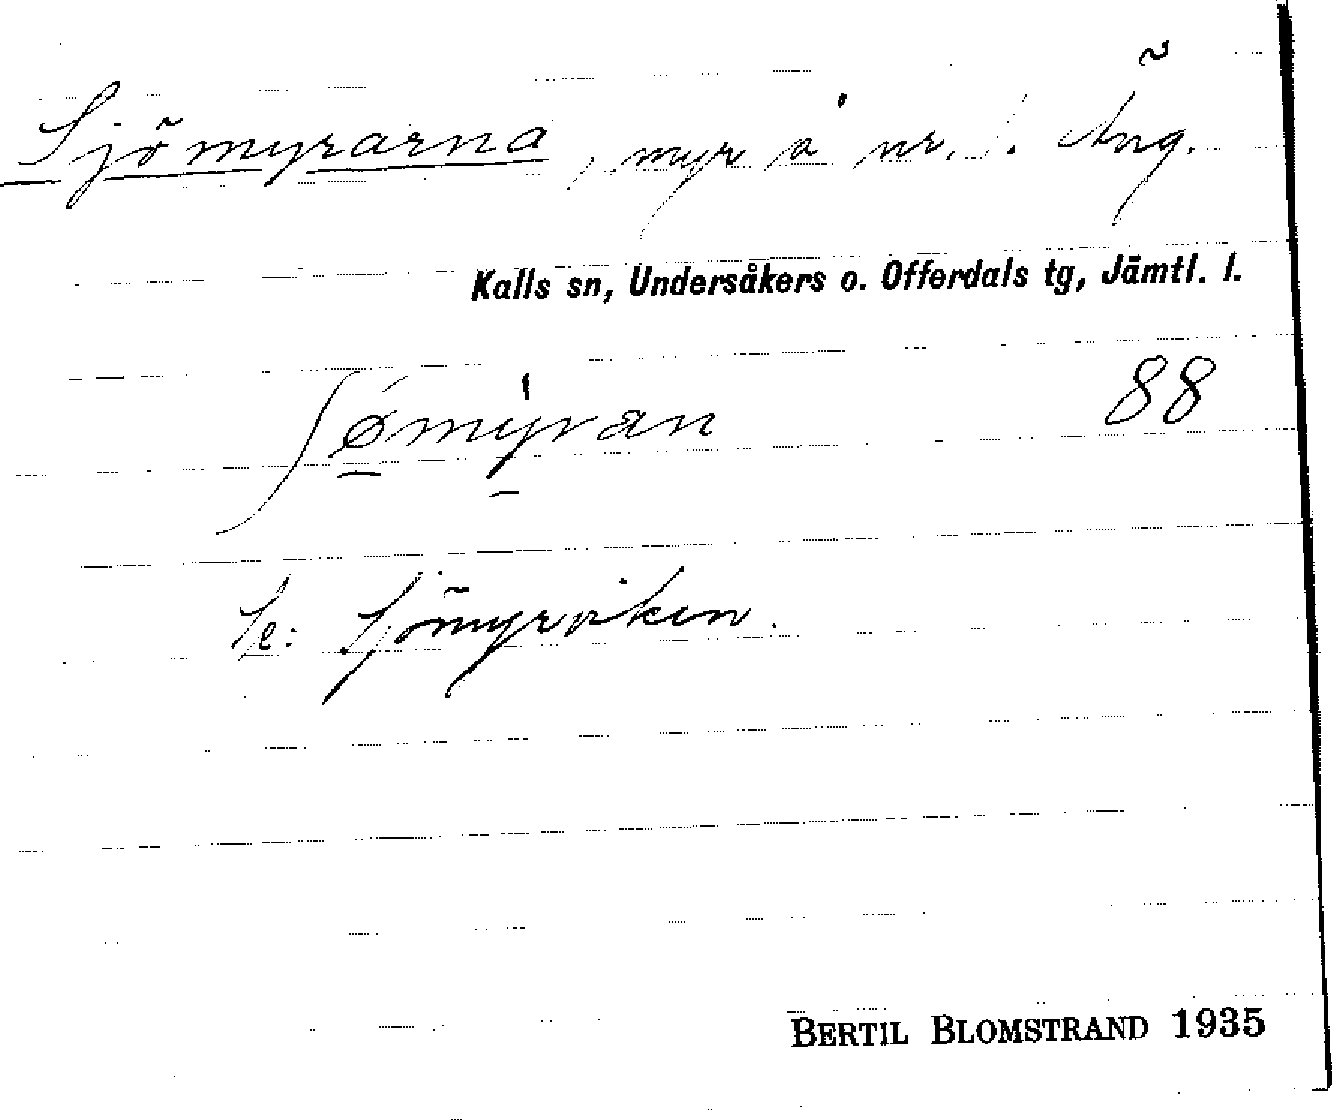 Sjömyrarna, myr å nr. 1. Äng.
Kalls sn, Undersåkers o. Offerdals tg, Jämtl. l.
ʃømỳran 88
Se: Sjömyrviken.
BERTIL BLOMSTRAND 1935